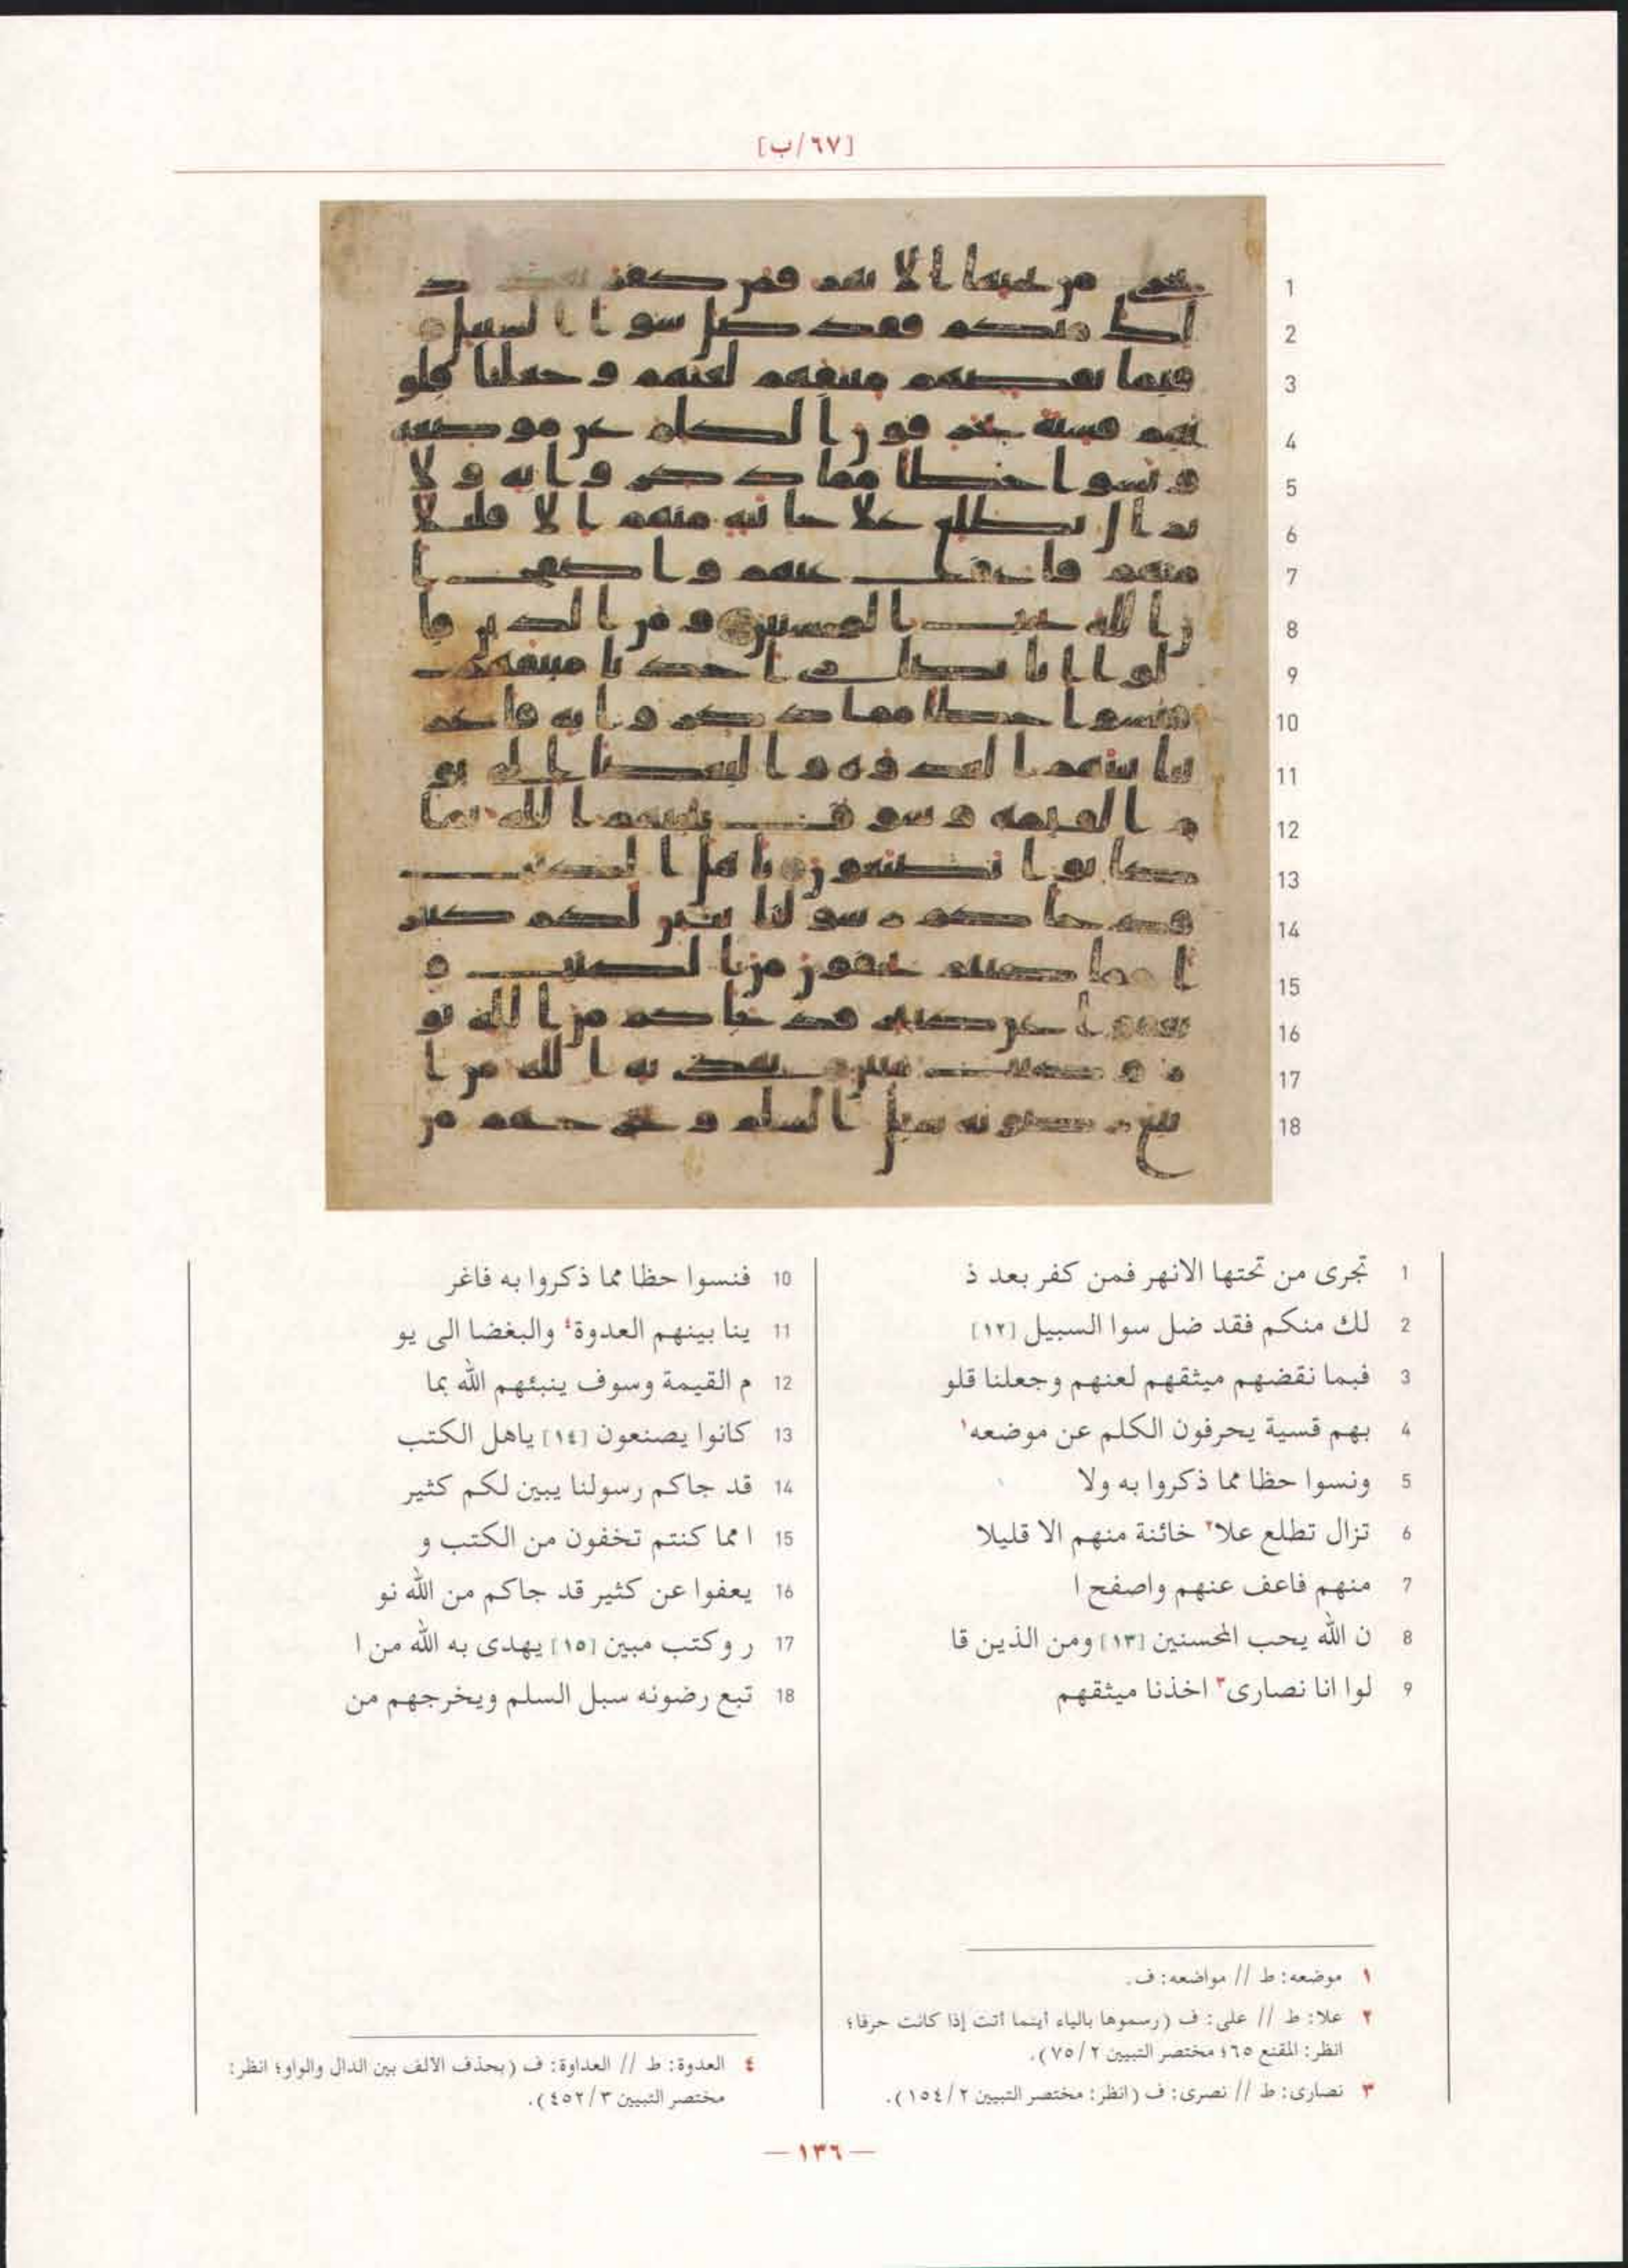 [٦٧/ب]
1 تجرى من تحتها الانهر فمن كفر بعد ذ
2 لك منكم فقد ضل سوا السبيل [١٢]
3 فبما نقضهم ميثقهم لعنهم وجعلنا قلو
4 بهم قسية يحرفون الكلم عن موضعه١
5 ونسوا حظا مما ذكروا به ولا
6 تزال تطلع علا٢ خائنة منهم الا قليلا
7 منهم فاعف عنهم واصفح ا
8 ن الله يحب المحسنين [١٣] ومن الذين قا
9 لوا انا نصارى٣ اخذنا ميثقهم
10 فنسوا حظا مما ذكروا به فاغر
11 ينا بينهم العدوة٤ والبغضا الى يو
12 م القيمة وسوف ينبئهم الله بما
13 كانوا يصنعون [١٤] ياهل الكتب
14 قد جاكم رسولنا يبين لكم كثير
15 ا مما كنتم تخفون من الكتب و
16 يعفوا عن كثير قد جاكم من الله نو
17 ر وكتب مبين [١٥] يهدى به الله من ا
18 تبع رضونه سبل السلم ويخرجهم من
١ موضعه: ط // مواضعه: ف.
٢ علا: ط // على: ف (رسموها بالياء أينما أتت إذا كانت حرفا؛
انظر: المقنع ٦٥؛ مختصر التبيين ٧٥/٢).
٣ نصارى: ط // نصرى: ف (انظر: مختصر التبيين ١٥٤/٢).
٤ العدوة: ط // العداوة: ف (بحذف الألف بين الدال والواو؛ انظر:
مختصر التبيين ٤٥٢/٣).
— ١٣٦ —